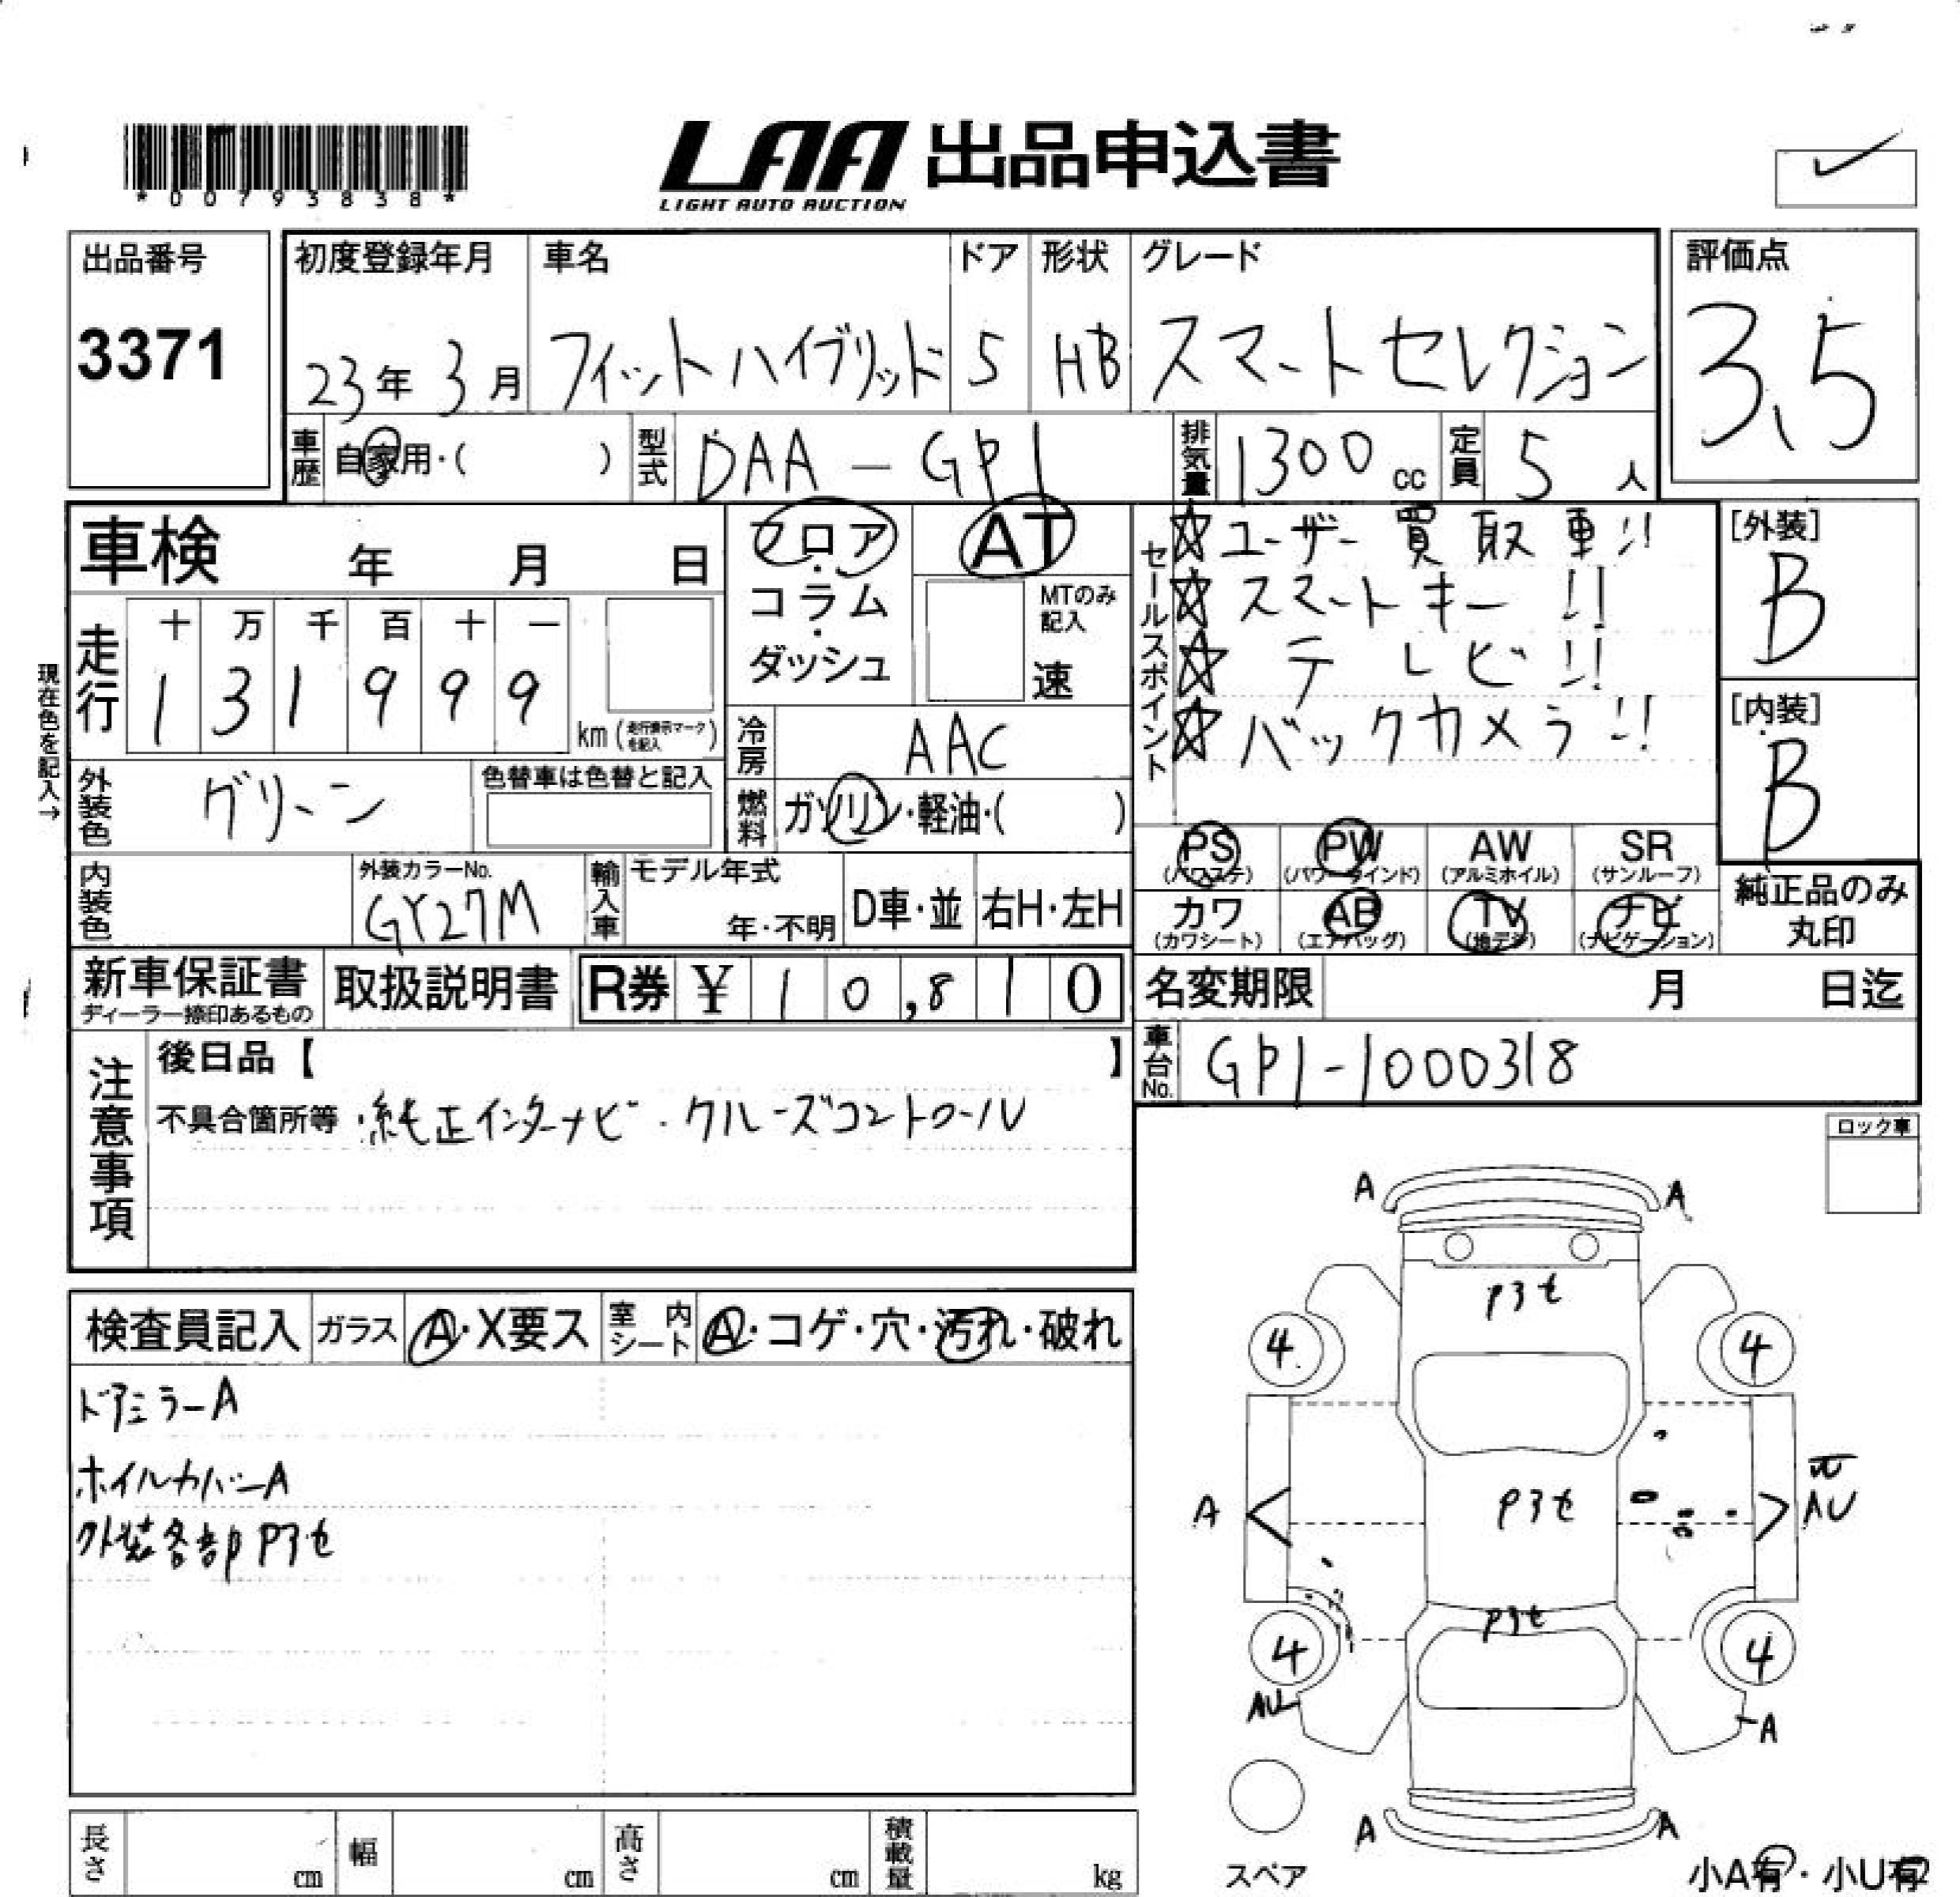 *00793838*
LAA 出品申込書
LIGHT AUTO AUCTION
出品番号
3371
初度登録年月
23年 3月
車名
フィットハイブリッド
ドア
5
形状
HB
グレード
スマートセレクション
評価点
3.5
車歴
自家用・( )
型式
DAA-GP1
排気量
1300 cc
定員
5 人
車検 年 月 日
フロア・コラム・ダッシュ
AT
MTのみ記入
速
セールスポイント
☆ユーザー買取車!!
☆スマートキー!!
☆テレビ!!
☆バックカメラ!!
[外装]
B
[内装]
B
現在色を記入→
走行
十 万 千 百 十 一
1 3 1 9 9 9
km(走行表示マークを記入)
冷房
AAC
外装色
グリーン
色替車は色替と記入
燃料
ガソリン・軽油・( )
PS
(パワステ)
PW
(パワーウインド)
AW
(アルミホイル)
SR
(サンルーフ)
カワ
(カワシート)
AB
(エアバッグ)
TV
(地デジ)
ナビ
(ナビゲーション)
純正品のみ
丸印
内装色
外装カラーNo.
GY27M
輸入車
モデル年式
年・不明
D車・並
右H・左H
新車保証書
ディーラー捺印あるもの
取扱説明書
R券 ¥ 10,810
名変期限 月 日迄
車台No.
GP1-1000318
注意事項
後日品【 】
不具合箇所等 ・純正インターナビ・クルーズコントロール
ロック車
検査員記入
ガラス
A・X要ス
室内シート
A・コゲ・穴・汚れ・破れ
ドアミラーA
ホイルカバーA
外装各部Pヨセ
A A
Pヨセ
4 4
A
Pヨセ
AU
Pヨセ
4 4
AU
A
A A
スペア
小A有・小U有
長さ cm
幅 cm
高さ cm
積載量 kg